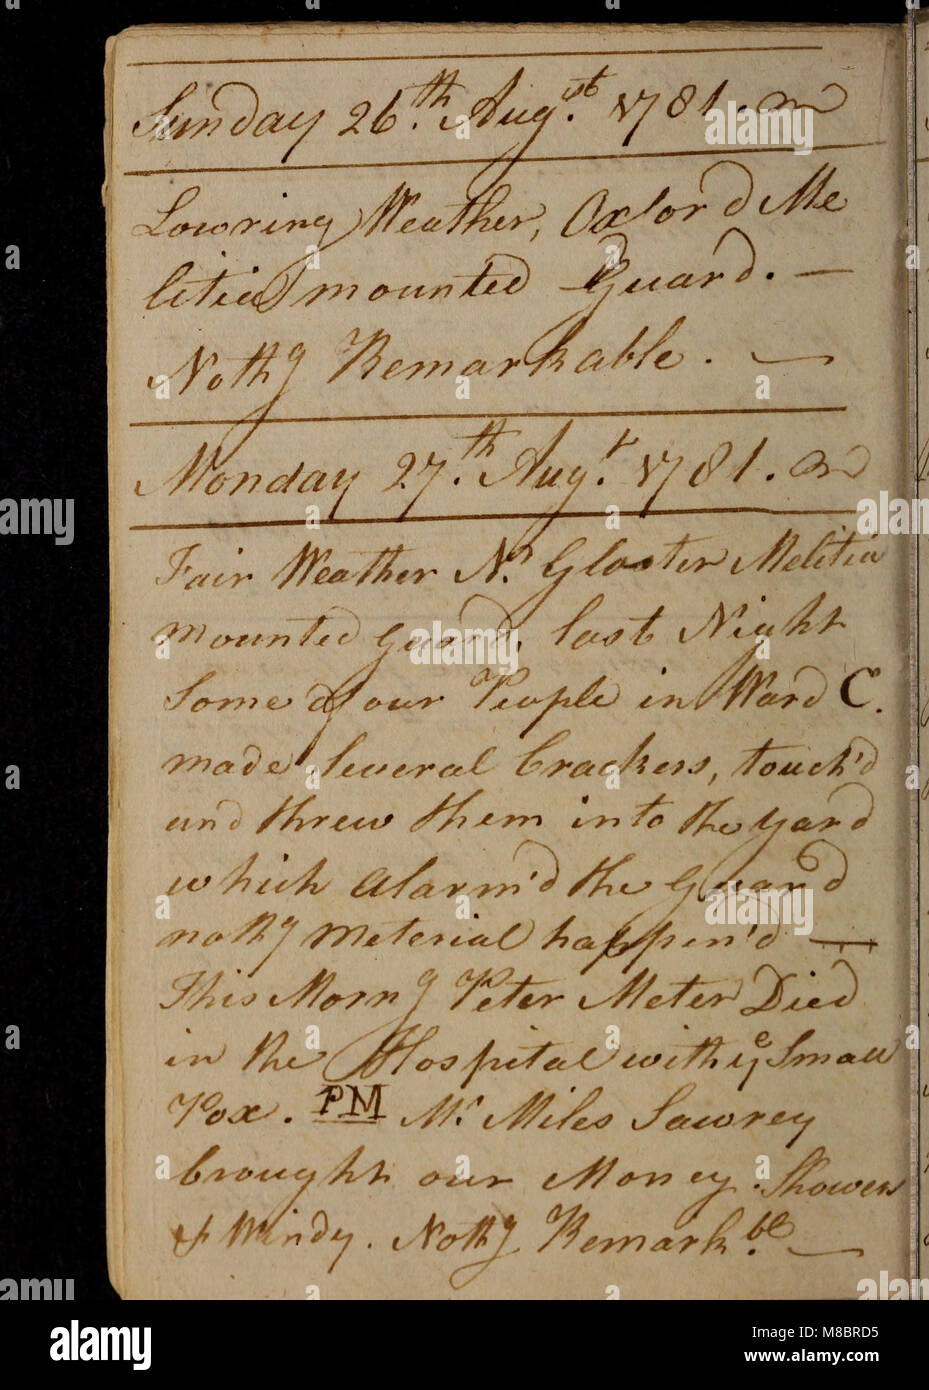 Sunday 26.th Aug.ust 1781.
Lowring Weather, Oxford Me
litia mounted Guard. —
Nothg Remarkable. —
Monday 27.th Aug.t 1781.
Fair Weather N.o Gloster Melitia
mounted guard, last Night
Some of our People in Ward C.
made Several Crackers, touch'd
and threw them into the yard
which alarm'd the Guard
nothg meterial happen'd —
This Morng Peter Meter Died
in the Hospital with ye Small
Pox. PM Mr. Miles Sawrey
brought our Money. Showers
& Windy. Nothg Remark.ble —
alamy
Image ID: M8BRD5
www.alamy.com